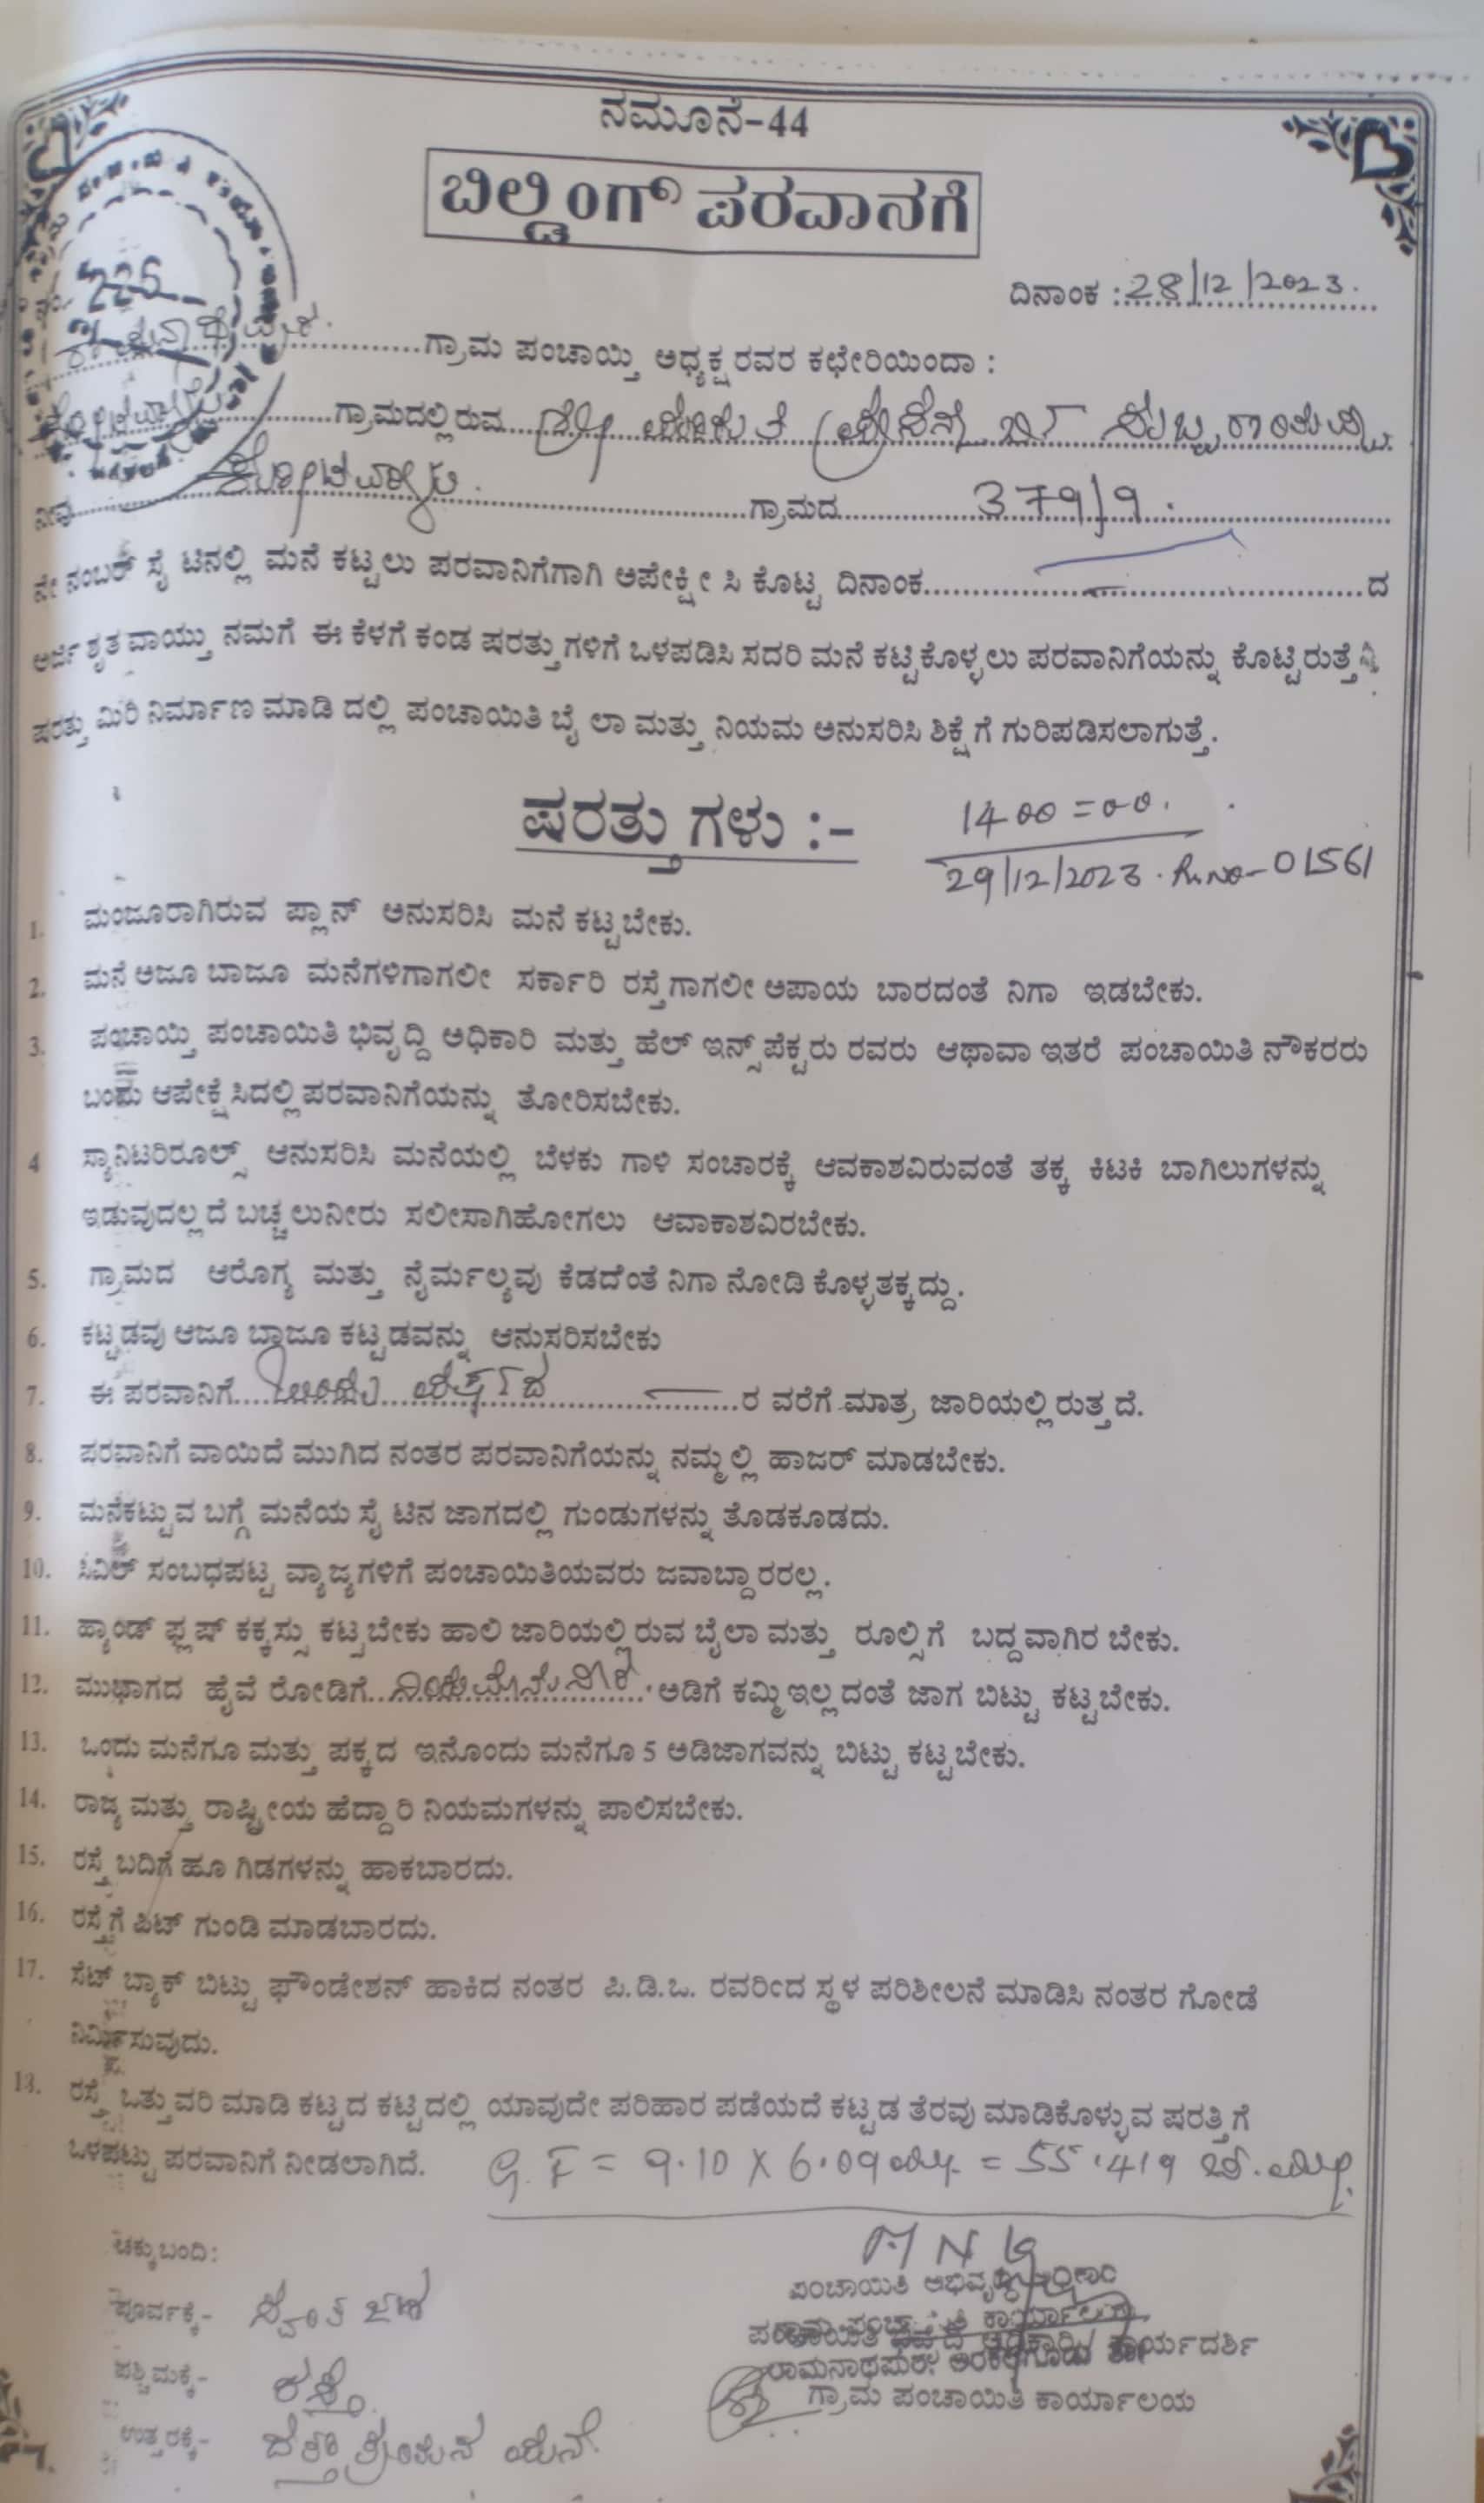 ನಮೂನೆ-44
ಬಿಲ್ಡಿಂಗ್ ಪರವಾನಗೆ
ದಿನಾಂಕ :28/12/2023.
226
ಗ್ರಾಮ ಪಂಚಾಯ್ತಿ ಅಧ್ಯಕ್ಷರವರ ಕಛೇರಿಯಿಂದಾ :
ಗ್ರಾಮದಲ್ಲಿರುವ
ನೀವು ಗ್ರಾಮದ 379/9.
ನೇ ನಂಬರ್ ಸೈಟಿನಲ್ಲಿ ಮನೆ ಕಟ್ಟಲು ಪರವಾನಿಗೆಗಾಗಿ ಅಪೇಕ್ಷೀಸಿ ಕೊಟ್ಟ ದಿನಾಂಕ ದ
ಅರ್ಜಿ ಶೃತವಾಯ್ತು ನಮಗೆ ಈ ಕೆಳಗೆ ಕಂಡ ಷರತ್ತುಗಳಿಗೆ ಒಳಪಡಿಸಿ ಸದರಿ ಮನೆ ಕಟ್ಟಿಕೊಳ್ಳಲು ಪರವಾನಿಗೆಯನ್ನು ಕೊಟ್ಟಿರುತ್ತೆ
ಷರತ್ತು ಮಿರಿ ನಿರ್ಮಾಣ ಮಾಡಿದಲ್ಲಿ ಪಂಚಾಯಿತಿ ಬೈಲಾ ಮತ್ತು ನಿಯಮ ಅನುಸರಿಸಿ ಶಿಕ್ಷೆಗೆ ಗುರಿಪಡಿಸಲಾಗುತ್ತೆ.
ಷರತ್ತುಗಳು :-
1400=00.
29/12/2023. R.No-01561
1. ಮಂಜೂರಾಗಿರುವ ಪ್ಲಾನ್ ಅನುಸರಿಸಿ ಮನೆ ಕಟ್ಟಬೇಕು.
2. ಮನೆ ಅಜೂ ಬಾಜೂ ಮನೆಗಳಿಗಾಗಲೀ ಸರ್ಕಾರಿ ರಸ್ತೆಗಾಗಲೀ ಅಪಾಯ ಬಾರದಂತೆ ನಿಗಾ ಇಡಬೇಕು.
3. ಪಂಚಾಯ್ತಿ ಪಂಚಾಯಿತಿ ಭಿವೃದ್ದಿ ಅಧಿಕಾರಿ ಮತ್ತು ಹೆಲ್ ಇನ್ಸ್‌ಪೆಕ್ಟರು ರವರು ಆಥಾವಾ ಇತರೆ ಪಂಚಾಯಿತಿ ನೌಕರರು
ಬಂದು ಆಪೇಕ್ಷೆಸಿದಲ್ಲಿ ಪರವಾನಿಗೆಯನ್ನು ತೋರಿಸಬೇಕು.
4 ಸ್ಯಾನಿಟರಿರೂಲ್ಸ್ ಆನುಸರಿಸಿ ಮನೆಯಲ್ಲಿ ಬೆಳಕು ಗಾಳಿ ಸಂಚಾರಕ್ಕೆ ಆವಕಾಶವಿರುವಂತೆ ತಕ್ಕ ಕಿಟಕಿ ಬಾಗಿಲುಗಳನ್ನು
ಇಡುವುದಲ್ಲದೆ ಬಚ್ಚಲುನೀರು ಸಲೀಸಾಗಿಹೋಗಲು ಆವಾಕಾಶವಿರಬೇಕು.
5. ಗ್ರಾಮದ ಆರೊಗ್ಯ ಮತ್ತು ನೈರ್ಮಲ್ಯವು ಕೆಡದೆಂತೆ ನಿಗಾ ನೋಡಿಕೊಳ್ಳತಕ್ಕದ್ದು.
6. ಕಟ್ಟಡವು ಆಜೂ ಬಾಜೂ ಕಟ್ಟಡವನ್ನು ಆನುಸರಿಸಬೇಕು
7. ಈ ಪರವಾನಿಗೆ ಒಂದು ವರ್ಷದ ರ ವರೆಗೆ ಮಾತ್ರ ಜಾರಿಯಲ್ಲಿರುತ್ತದೆ.
8. ಪರವಾನಿಗೆ ವಾಯಿದೆ ಮುಗಿದ ನಂತರ ಪರವಾನಿಗೆಯನ್ನು ನಮ್ಮಲ್ಲಿ ಹಾಜರ್ ಮಾಡಬೇಕು.
9. ಮನೆಕಟ್ಟುವ ಬಗ್ಗೆ ಮನೆಯ ಸೈಟಿನ ಜಾಗದಲ್ಲಿ ಗುಂಡುಗಳನ್ನು ತೊಡಕೂಡದು.
10. ಸಿವಿಲ್ ಸಂಬಧಪಟ್ಟ ವ್ಯಾಜ್ಯಗಳಿಗೆ ಪಂಚಾಯಿತಿಯವರು ಜವಾಬ್ದಾರರಲ್ಲ.
11. ಹ್ಯಾಂಡ್ ಫ್ಲಷ್ ಕಕ್ಕಸ್ಸು ಕಟ್ತಬೇಕು ಹಾಲಿ ಜಾರಿಯಲ್ಲಿರುವ ಬೈಲಾ ಮತ್ತು ರೂಲ್ಸಿಗೆ ಬದ್ದವಾಗಿರಬೇಕು.
12. ಮುಭಾಗದ ಹೈವೆ ರೋಡಿಗೆ ನಿಯಮಾನುಸಾರ ಅಡಿಗೆ ಕಮ್ಮಿಇಲ್ಲದಂತೆ ಜಾಗ ಬಿಟ್ಟು ಕಟ್ಟಬೇಕು.
13. ಒಂದು ಮನೆಗೂ ಮತ್ತು ಪಕ್ಕದ ಇನೊಂದು ಮನೆಗೂ 5 ಅಡಿಜಾಗವನ್ನು ಬಿಟ್ಟು ಕಟ್ಟಬೇಕು.
14. ರಾಜ್ಯ ಮತ್ತು ರಾಷ್ಟ್ರೀಯ ಹೆದ್ದಾರಿ ನಿಯಮಗಳನ್ನು ಪಾಲಿಸಬೇಕು.
15. ರಸ್ತೆ ಬದಿಗೆ ಹೂ ಗಿಡಗಳನ್ನು ಹಾಕಬಾರದು.
16. ರಸ್ತೆಗೆ ಪಿಟ್ ಗುಂಡಿ ಮಾಡಬಾರದು.
17. ಸೆಟ್ ಬ್ಯಾಕ್ ಬಿಟ್ಟು ಫೌಂಡೇಶನ್ ಹಾಕಿದ ನಂತರ ಪಿ.ಡಿ.ಒ. ರವರಿಂದ ಸ್ಥಳ ಪರಿಶೀಲನೆ ಮಾಡಿಸಿ ನಂತರ ಗೋಡೆ
ನಿರ್ಮಿಸುವುದು.
18. ರಸ್ತೆ ಒತ್ತುವರಿ ಮಾಡಿ ಕಟ್ಟದ ಕಟ್ಟಿದಲ್ಲಿ ಯಾವುದೇ ಪರಿಹಾರ ಪಡೆಯದೆ ಕಟ್ಟಡ ತೆರವು ಮಾಡಿಕೊಳ್ಳುವ ಷರತ್ತಿಗೆ
ಒಳಪಟ್ಟು ಪರವಾನಿಗೆ ನೀಡಲಾಗಿದೆ.
G.F = 9.10 X 6.09 ಮೀ = 55.419 ಚ.ಮೀ.
ಚಕ್ಕುಬಂದಿ:
ಪೂರ್ವಕ್ಕೆ- ಸ್ವಂತ
ಪಶ್ಚಿಮಕ್ಕೆ- ರಸ್ತೆ
ಉತ್ತರಕ್ಕೆ- ಮನೆ
ಪಂಚಾಯಿತಿ
ಕಾರ್ಯದರ್ಶಿ
ರಾಮನಾಥಪುರ. ಅರಕಲಗೂಡು ತಾ||
ಗ್ರಾಮ ಪಂಚಾಯಿತಿ ಕಾರ್ಯಾಲಯ